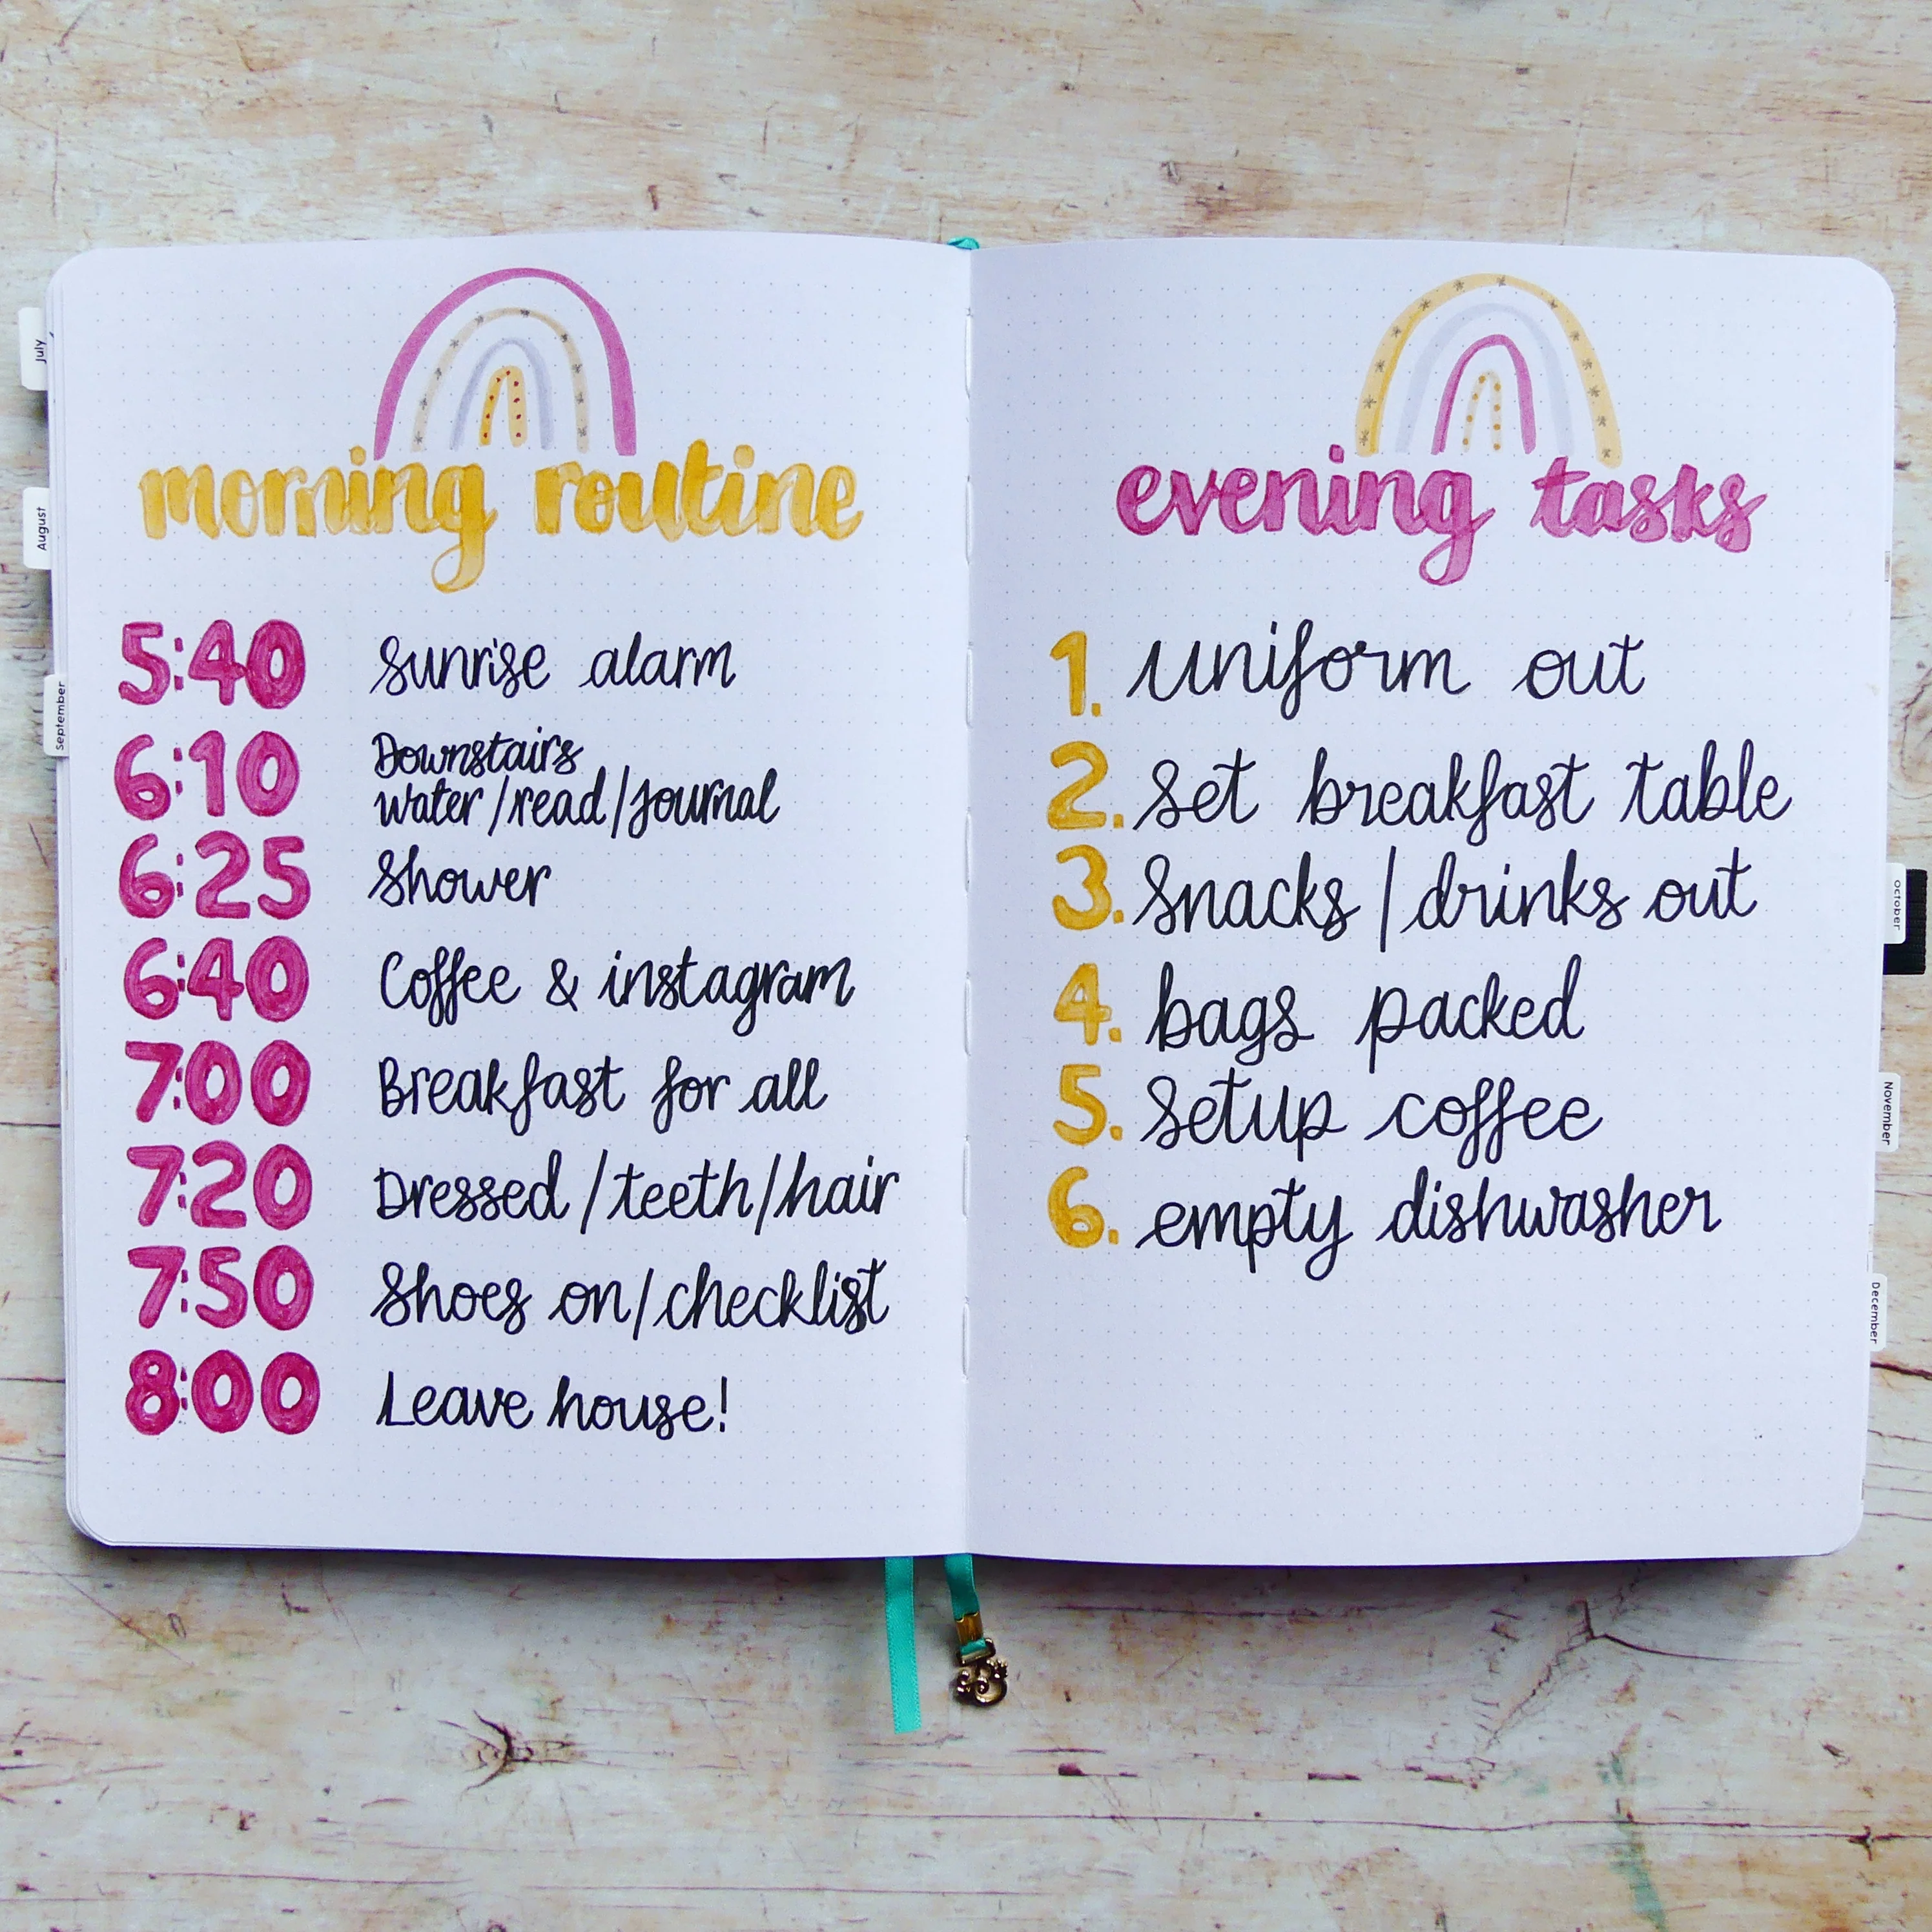 morning routine
5:40 sunrise alarm
6:10 Downstairs
water/read/journal
6:25 Shower
6:40 Coffee & instagram
7:00 Breakfast for all
7:20 Dressed/teeth/hair
7:50 Shoes on/checklist
8:00 Leave house!
evening tasks
1. uniform out
2. set breakfast table
3. snacks/drinks out
4. bags packed
5. setup coffee
6. empty dishwasher
July
August
September
October
November
December